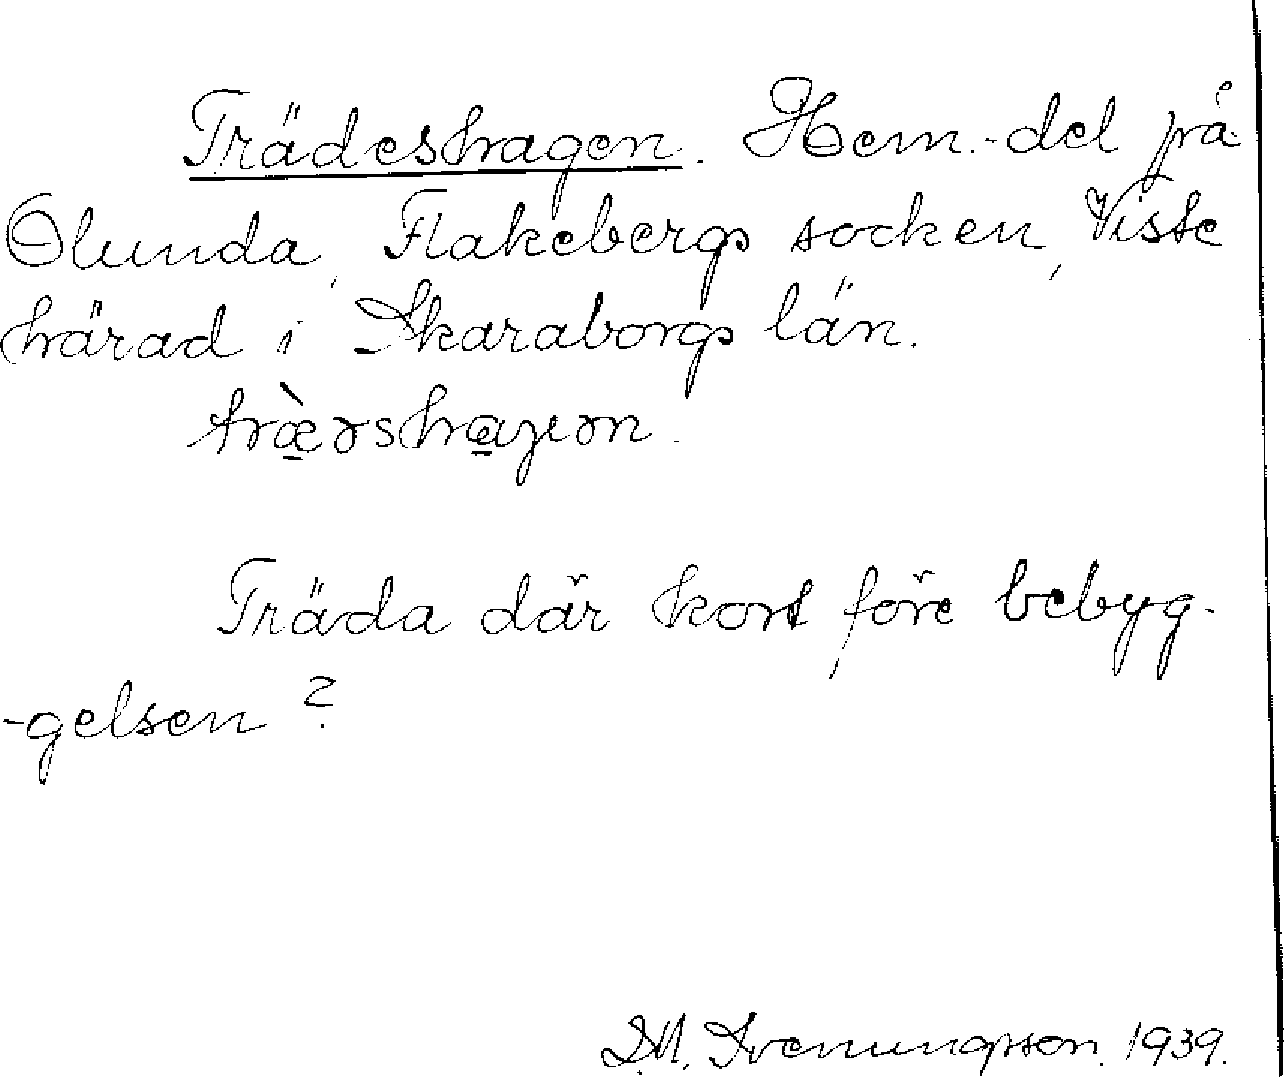 Trädeshagen. Hem.-del på
Ölunda, Flakebergs socken, Viste
härad i Skaraborgs län.
træ̀ərshaɡɜn.
Träda där kort före bebyg-
-gelsen?
D.M. Svenungsson. 1939.